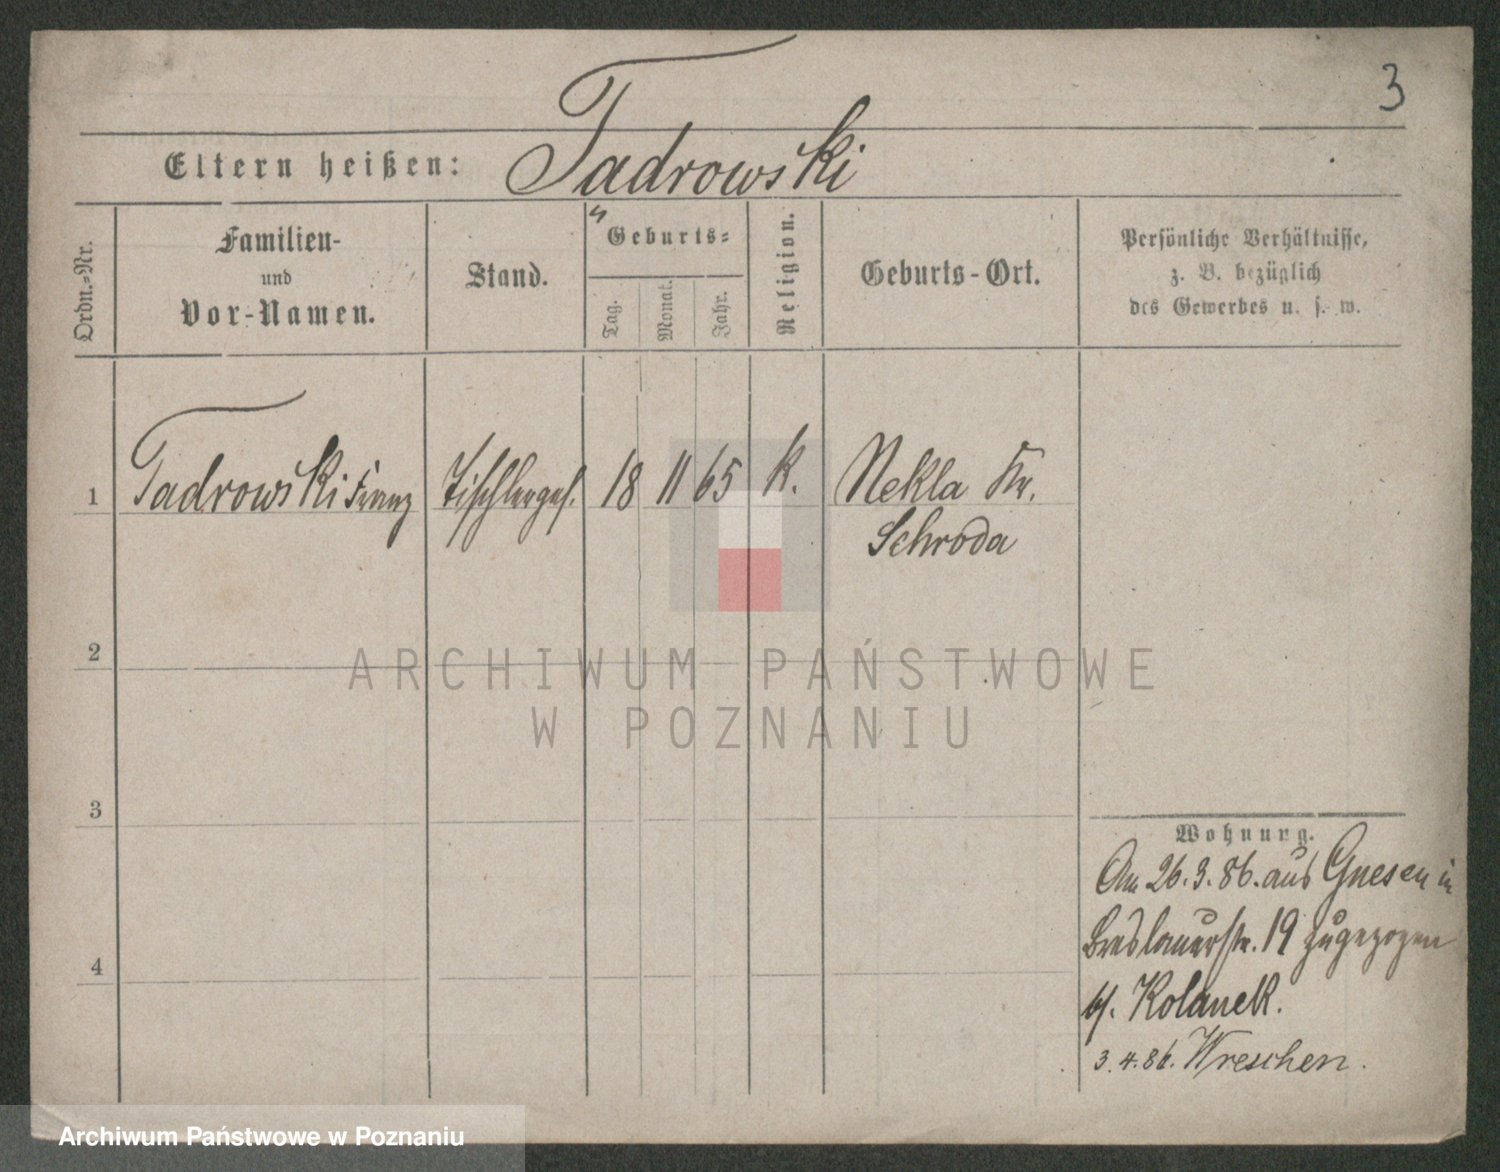 3
Eltern heißen: Tadrowski
Ordn.-Nr.
Familien-
und
Vor-Namen.
Stand.
Geburts-
Tag.
Monat.
Jahr.
Religion.
Geburts-Ort.
Persönliche Verhältnisse,
z. B. bezüglich
des Gewerbes u. s. w.
1 Tadrowski Franz Tischlerges. 18 11 65 k. Nekla Kr.
Schroda
2
ARCHIWUM PAŃSTWOWE
W POZNANIU
3
Wohnung.
Am 26.3.86. aus Gnesen in
Breslauerstr. 19 zugezogen
4
b/. Kolanek.
3.4.86. Wreschen.
Archiwum Państwowe w Poznaniu